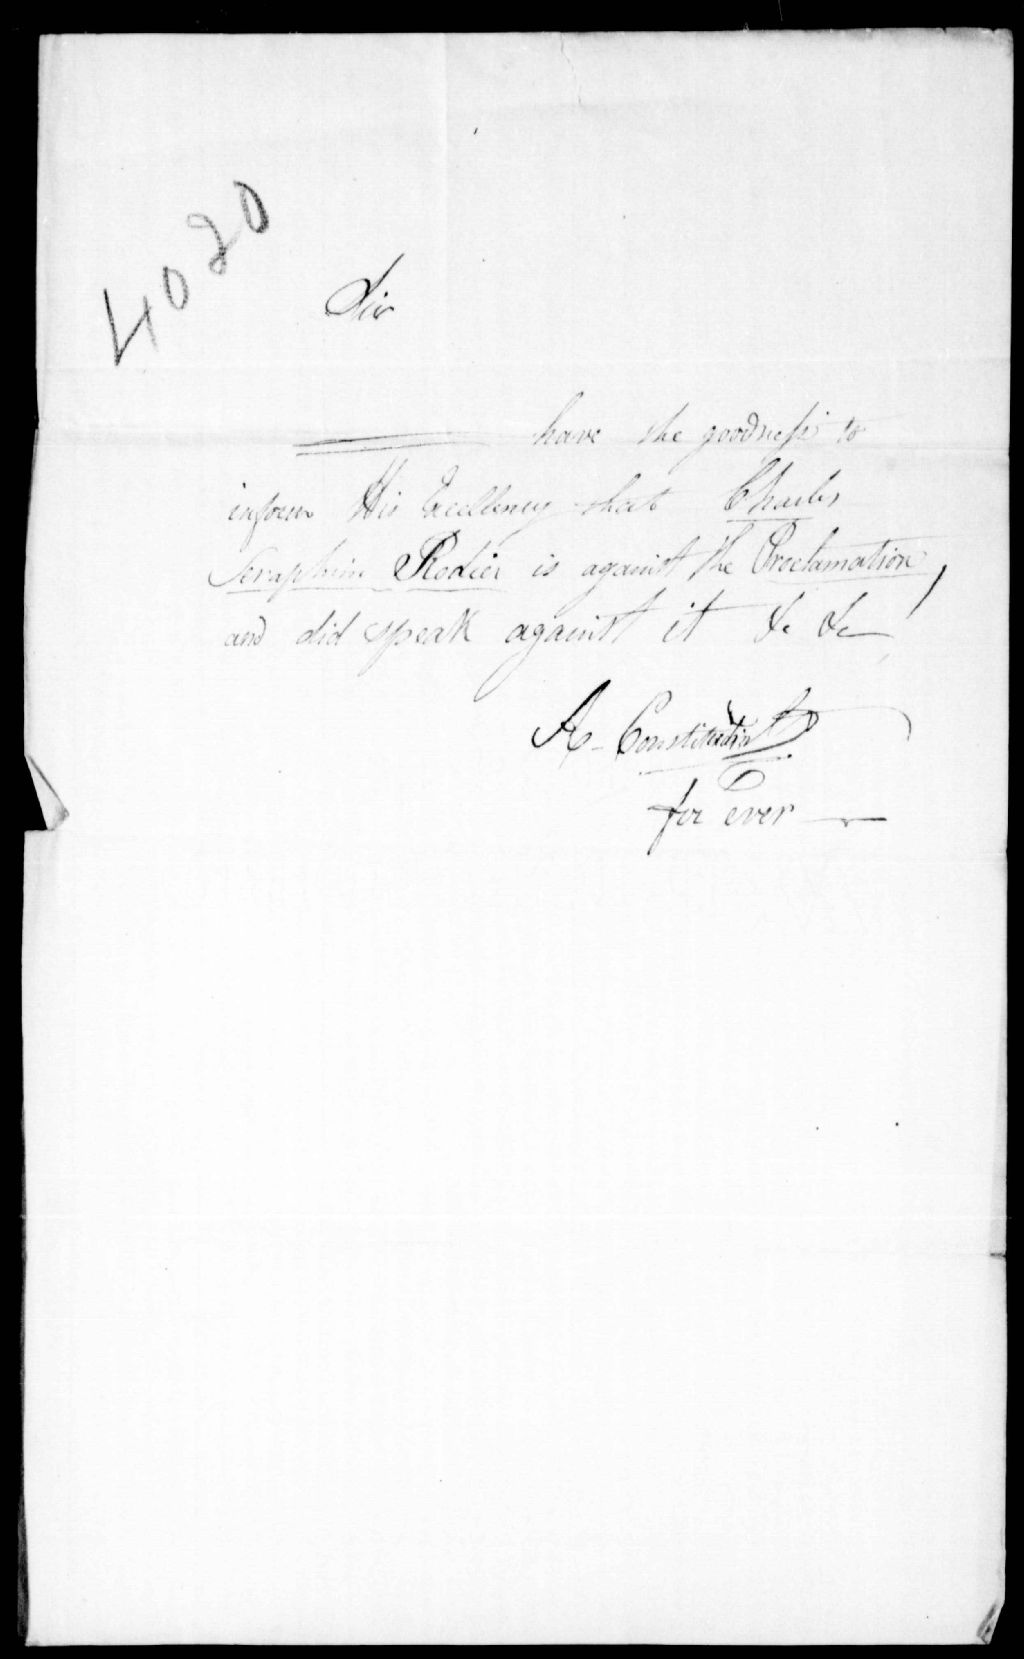 4020
Sir
have the goodness to
inform His Excellency that Charles
Seraphim Rodier is against the Proclamation,
and did speak against it &c &c
A- Constitution
for Ever